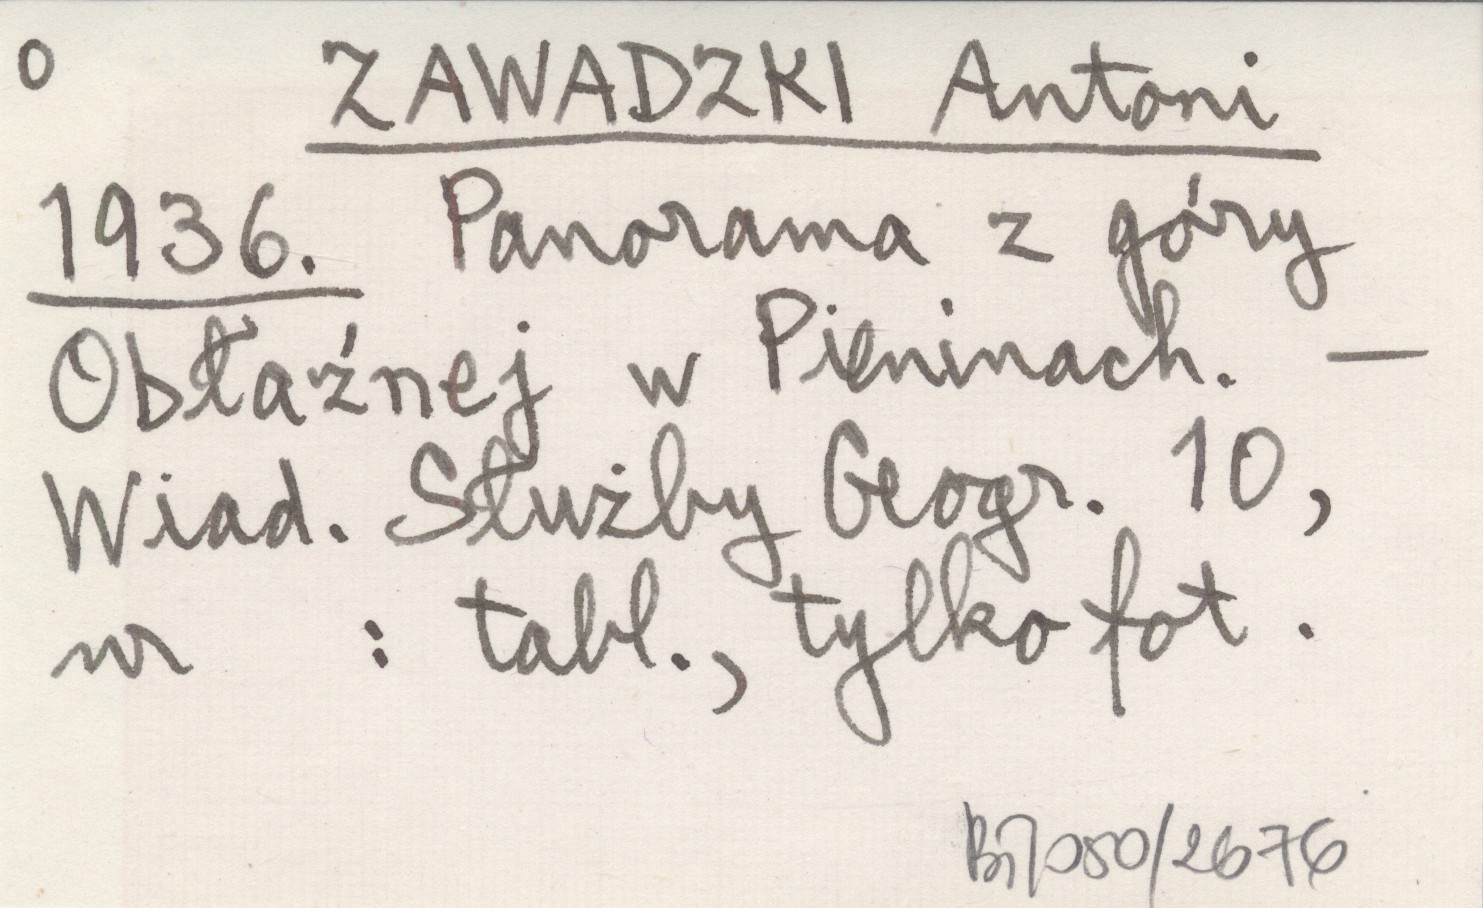 o ZAWADZKI Antoni
1936. Panorama z góry
Obłaźnej w Pieninach. —
Wiad. Służby Geogr. 10,
nr : tabl., tylko fot.
/2676